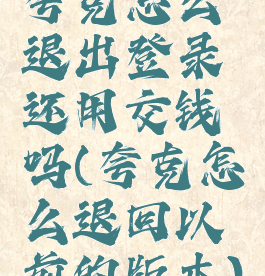 夸克怎么
退出登录
还用交钱
吗(夸克怎
么退回以
前的版本)